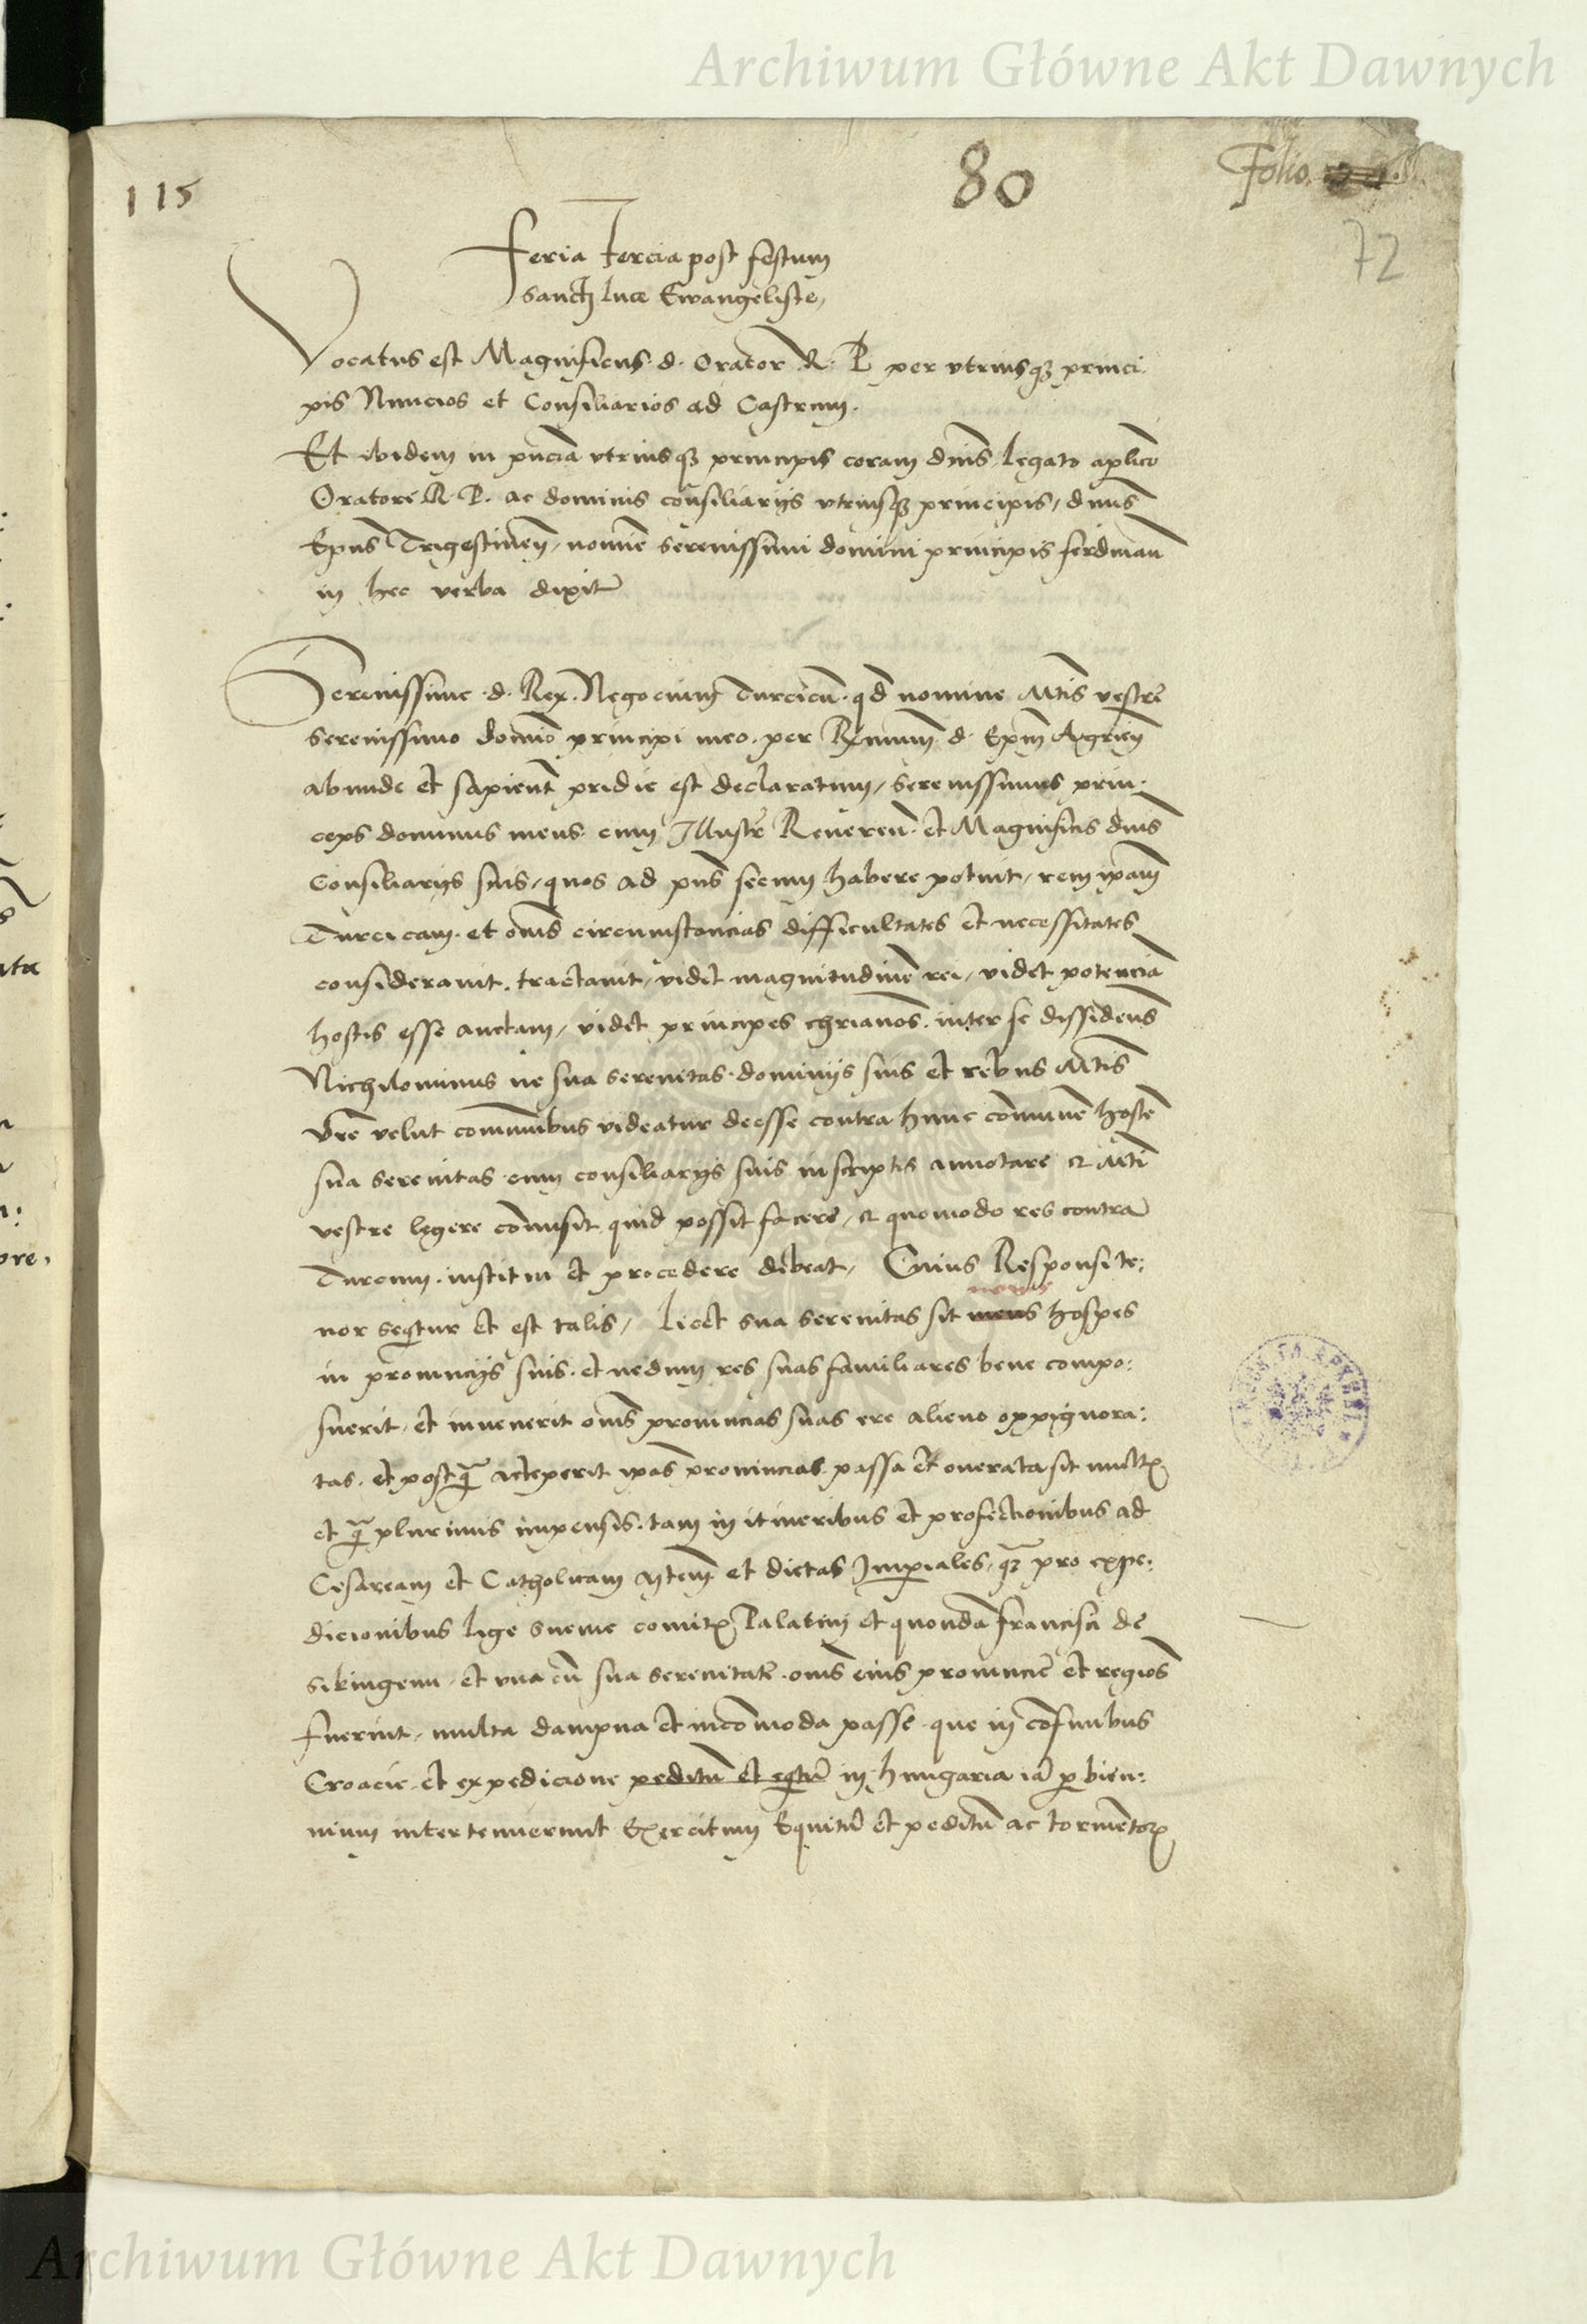 Archiwum Główne Akt Dawnych
115
80
Folio.
72
Feria Tercia post festum
sancti luce Ewangeliste,
Vocatus est Magnificus d. Orator R. P. per vtriusq3 princi:
pis Nuncios et Consiliarios ad Castrum.
Et ibidem in pñcia vtriusq3 principis coram dñis legato aplico
Oratore R. P. ac dominis consiliarijs vtriusq3 principis, dnus
Epus Trigestineñ, nomie serenissimi domini principis ferdinan
in hec verba dixit
Serenissime d. Rex. Negocium Turcicũ. qd nomine Mtis vestre
serenissimo domio principi meo. per Rmum d. Epm Agrień
abunde et sapient pridie est declaratum, serenissimus prin:
ceps dominus meus cum Illustr Reueren. et Magnificis dnis
Consiliarijs suis, quos ad pns secum habere potuit, rem ipam
Turcicam. et oms circumstancias difficultates et necessitates
considerauit. tractauit, videt magnitudinẽ rei, videt potenciã
hostis esse auctam, videt principes chrianos. inter se dissidens
Nichilominus ne sua serenitas. dominijs suis et rebus Mtis
vre velut communibus videatur deesse contra hunc comunẽ hostẽ
sua serenitas cum consiliarijs suis in scriptis annotare & Mti
vestre legere comisit quid possit facere, & quomodo res contra
Turcum. institui et procedere debeat, Cuius Responsi te:
nor seqtur et est talis, Licet sua serenitas sit meus nouus hospes
in prouincijs suis. et nedum res suas familiares bene compo:
suerit, et inuenerit oms prouincias suas ere alieno oppignora:
tas. et postq̃ acceperit ipas prouincias passa et onerata sit mult
et q̃ plurimis impensis. tam in itineribus et profectionibus ad
Cesaream et Catholicam Mtem et dietas Imperiales, pro expe:
dicionibus lige sueuie comit Palatini et quondã francisci de
sikingenn, et vna cũ sua serenitate. oms eius prouincie et regios
fuerint, multa dampna et incomoda passe. que in cofinibus
Croacie et expedicione peditũ et eqtũ in hungaria iã p bien:
nium intertenuerunt Exercitum Equitũ et peditũ ac tormentor
Archiwum Główne Akt Dawnych